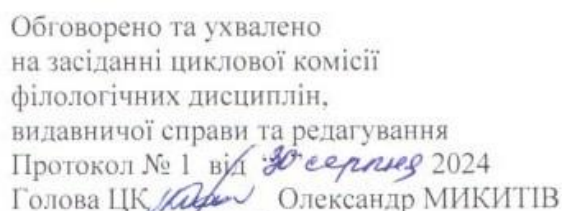 Обговорено та ухвалено
на засіданні циклової комісії
філологічних дисциплін,
видавничої справи та редагування
Протокол № 1 від 30 серпня 2024
Голова ЦК Олександр МИКИТІВ